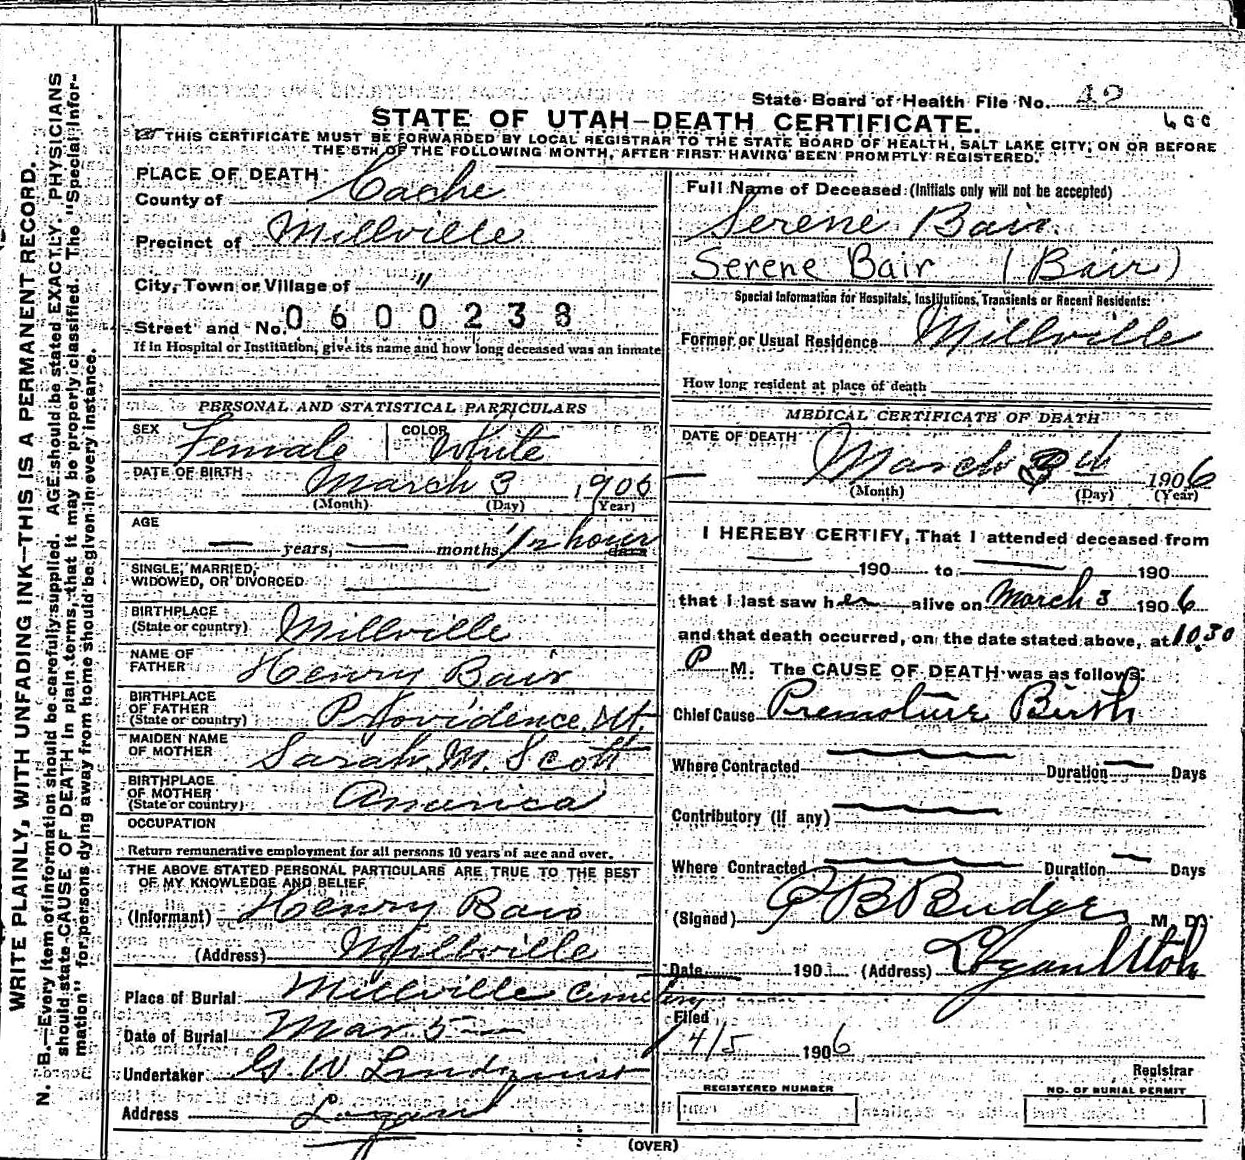 State Board of Health File No. 42
600
STATE OF UTAH—DEATH CERTIFICATE.
THIS CERTIFICATE MUST BE FORWARDED BY LOCAL REGISTRAR TO THE STATE BOARD OF HEALTH, SALT LAKE CITY, ON OR BEFORE
THE 5TH OF THE FOLLOWING MONTH, AFTER FIRST HAVING BEEN PROMPTLY REGISTERED.
WRITE PLAINLY, WITH UNFADING INK—THIS IS A PERMANENT RECORD.
N. B.—Every item of information should be carefully supplied. AGE should be stated EXACTLY. PHYSICIANS
should state CAUSE OF DEATH in plain terms, that it may be properly classified. The "Special Infor-
mation" for persons dying away from home should be given in every instance.
PLACE OF DEATH
County of Cache
Precinct of Millville
City, Town or Village of "
Street and No. 0600238
If in Hospital or Institution, give its name and how long deceased was an inmate
PERSONAL AND STATISTICAL PARTICULARS
SEX Female COLOR White
DATE OF BIRTH March 3 1906
(Month) (Day) (Year)
AGE
— years, — months 1/2 hour days
SINGLE, MARRIED,
WIDOWED, OR DIVORCED
BIRTHPLACE
(State or country) Millville
NAME OF
FATHER Henry Bair
BIRTHPLACE
OF FATHER
(State or country) Providence, Ut.
MAIDEN NAME
OF MOTHER Sarah M. Scott
BIRTHPLACE
OF MOTHER
(State or country) America
OCCUPATION
Return remunerative employment for all persons 10 years of age and over.
THE ABOVE STATED PERSONAL PARTICULARS ARE TRUE TO THE BEST
OF MY KNOWLEDGE AND BELIEF
(Informant) Henry Bair
(Address) Millville
Place of Burial Millville Cemetery
Date of Burial Mar 5—
Undertaker G. W. Lindquist
Address Logan
Full Name of Deceased (Initials only will not be accepted)
Serene Bair
Serene Bair (Bair)
Special Information for Hospitals, Institutions, Transients or Recent Residents:
Former or Usual Residence Millville
How long resident at place of death
MEDICAL CERTIFICATE OF DEATH
DATE OF DEATH March 3th 1906
(Month) (Day) (Year)
I HEREBY CERTIFY, That I attended deceased from
— 190 to — 190
that I last saw her alive on March 3 1906
and that death occurred, on the date stated above, at 10.30
P M. The CAUSE OF DEATH was as follows:
Chief Cause Premature Birth
Where Contracted — Duration — Days
Contributory (If any) —
Where Contracted — Duration — Days
(Signed) Budge M. D.
Date 190 (Address) Logan Utah
Filed
4/5 1906
Registrar
REGISTERED NUMBER
NO. OF BURIAL PERMIT
(OVER)